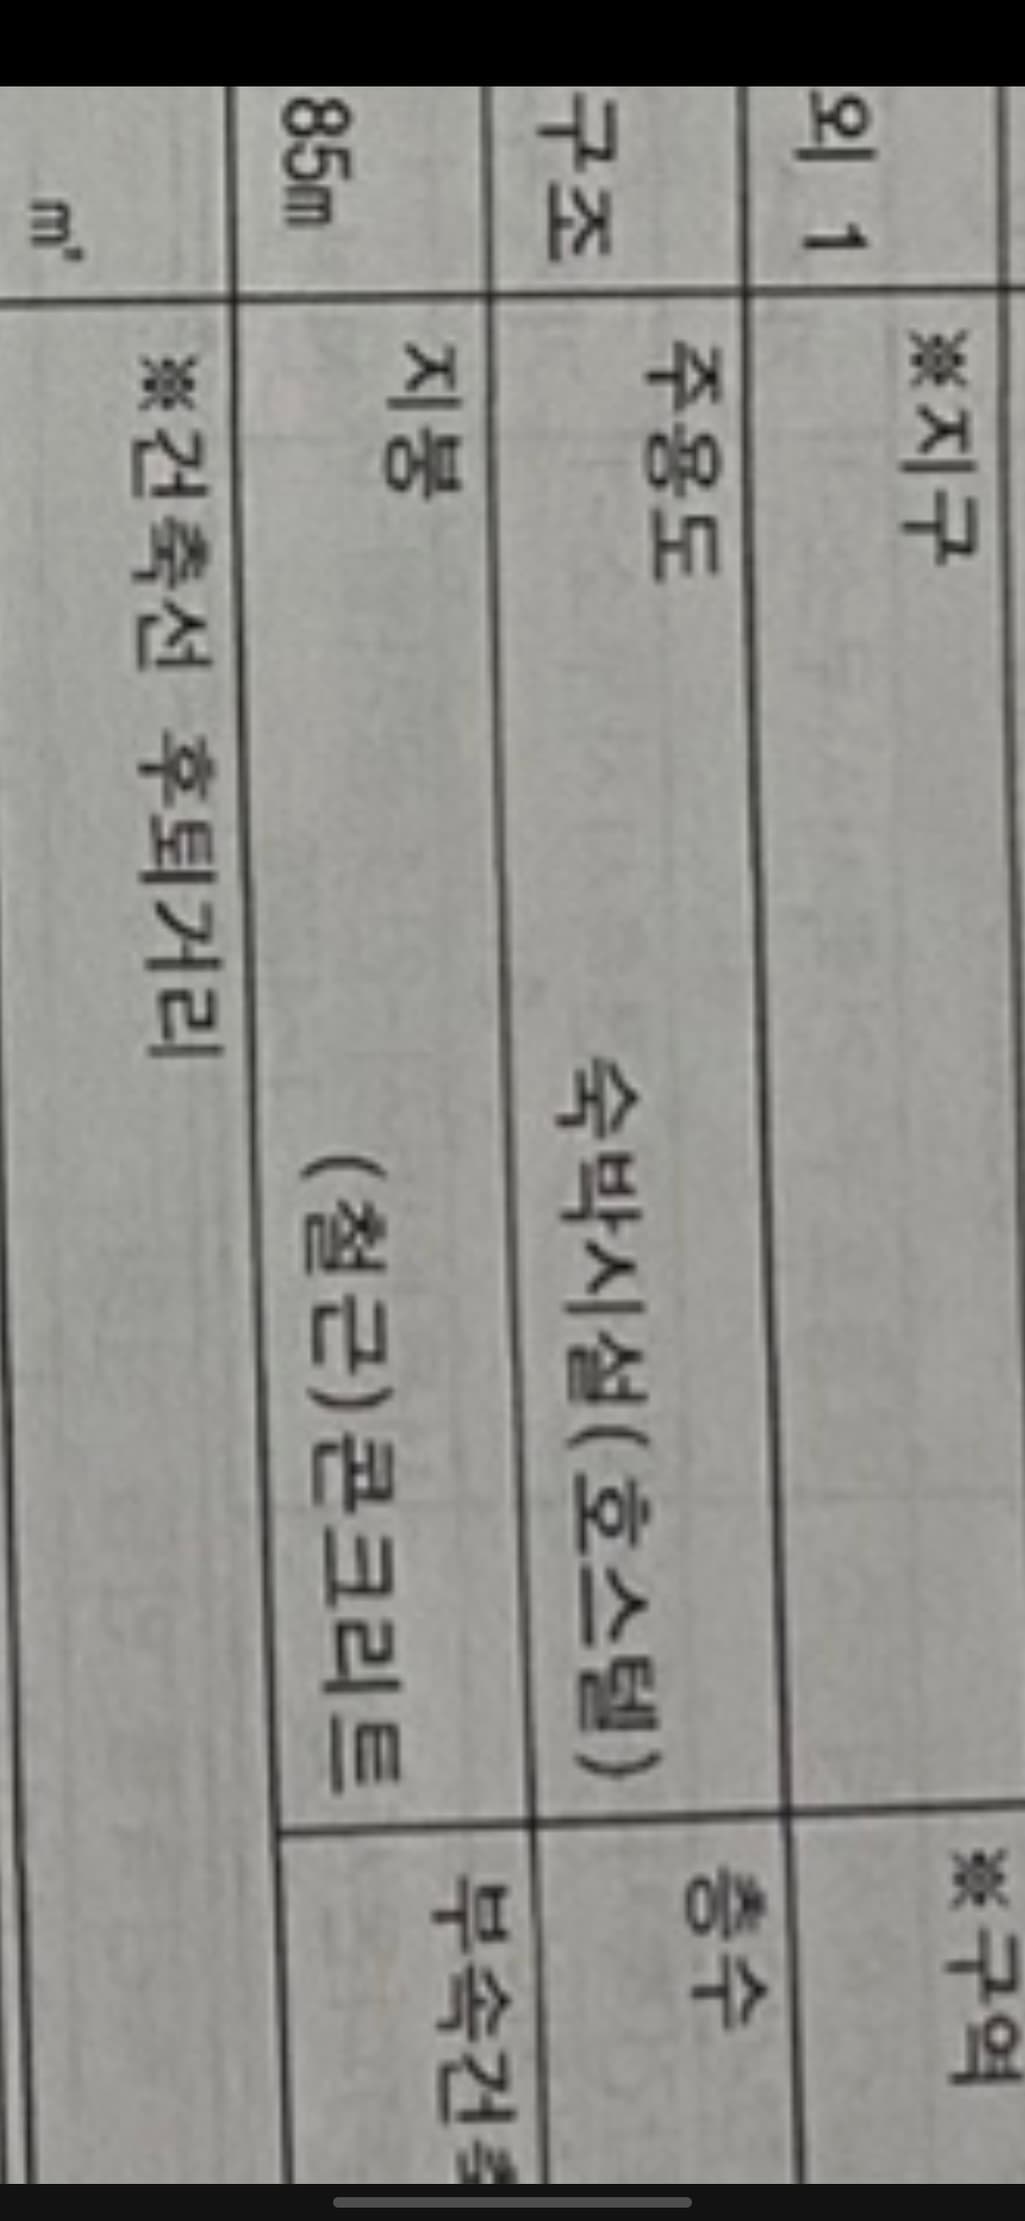 외 1
※지구
※구역
구조
주용도
숙박시설(호스텔)
층수
85m
지붕
(철근)콘크리트
부속건축
㎡
※건축선 후퇴거리